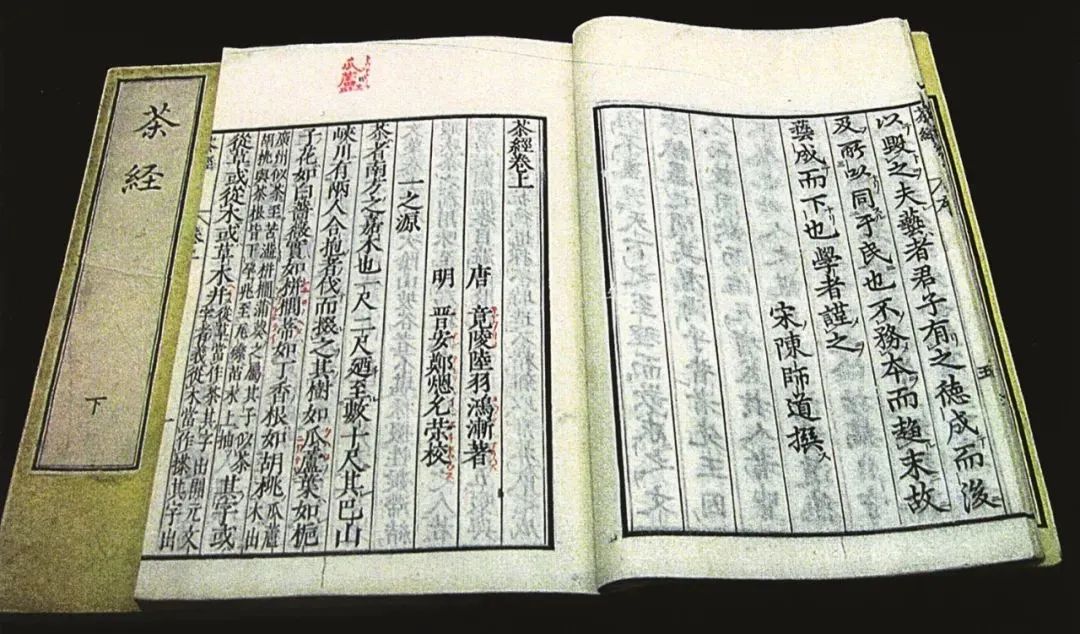 茶経
下
以毀之夫藝者君子有之德成而後
及所以同于民也不務本而趨末故
藝成而下也學者謹之
宋陳師道撰
五
瓜蘆
茶經卷上
唐 竟陵陸羽鴻漸著
明 晋安鄭熜允榮校
一之源
茶者南方之嘉木也一尺二尺廼至數十尺其巴山
峽川有兩人合抱者伐而掇之其樹如瓜蘆葉如梔
子花如白薔薇實如栟櫚蒂如丁香根如胡桃 瓜蘆木出
廣州似茶至苦澁栟櫚蒲葵之屬其子似茶
胡桃與茶根皆下孕兆至瓦礫苗木上抽 其字或
從草或從木或草木并 從草當作茶其字出開元文
字音義從木當作搽其字出